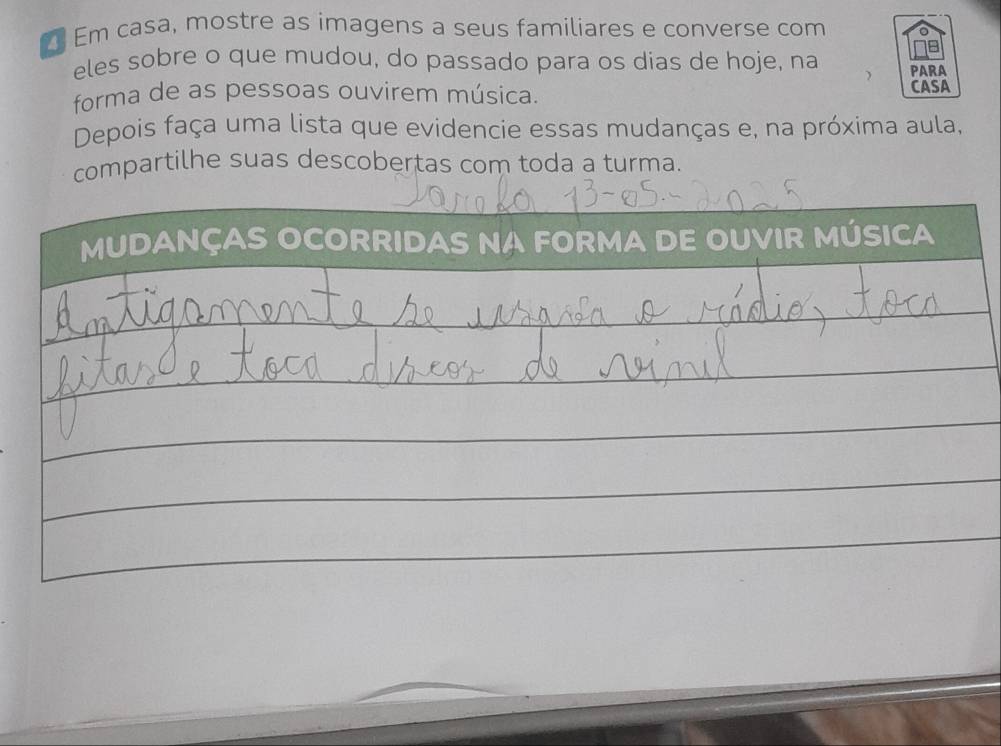 4 Em casa, mostre as imagens a seus familiares e converse com
eles sobre o que mudou, do passado para os dias de hoje, na
forma de as pessoas ouvirem música.
Depois faça uma lista que evidencie essas mudanças e, na próxima aula,
compartilhe suas descobertas com toda a turma.
PARA
CASA
Tarefa 13-05-2025
MUDANÇAS OCORRIDAS NA FORMA DE OUVIR MÚSICA
Antigamente se usava o rádio, toca
fitas e toca discos de vinil